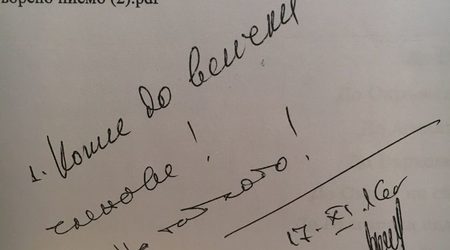 ворено писмо (2).pdf
1. Копие до всички
членове!
На таблото!
17. XI.